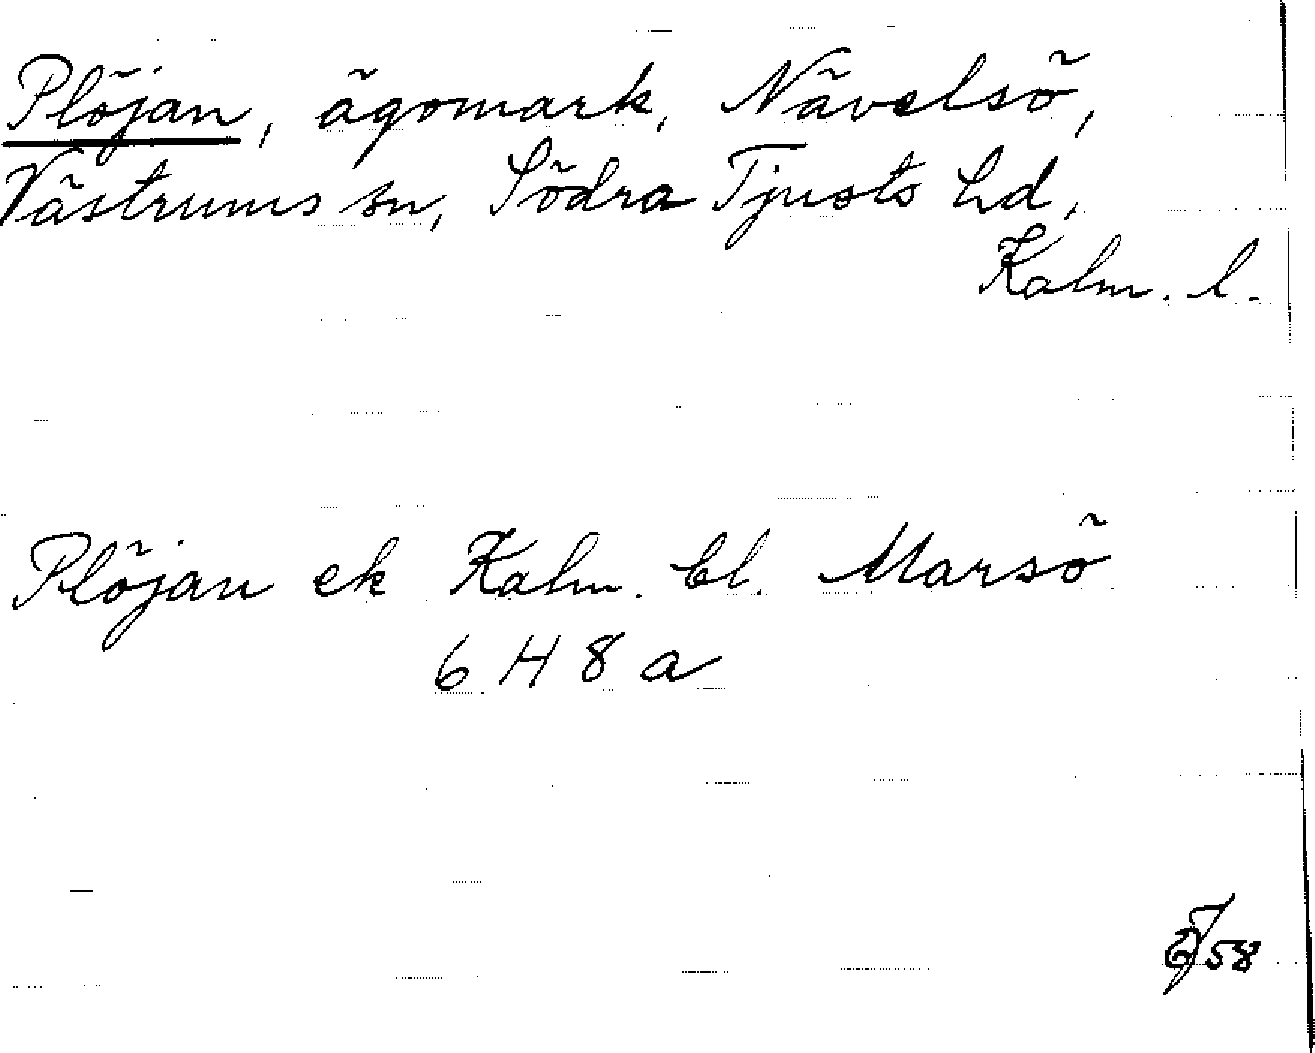 Plöjan, ägomark, Nävelsö,
Västrums sn, Södra Tjusts hd,
Kalm. l.
Plöjan ek Kalm. bl. Marsö
6 H 8 a
58